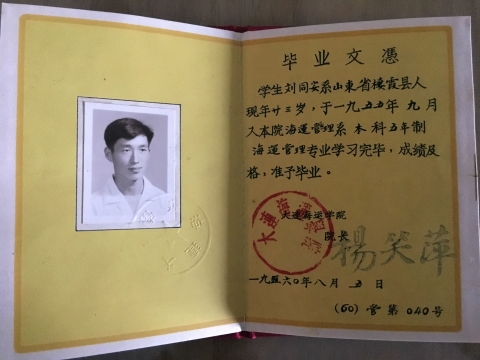 毕业文憑
学生刘同安系山东省棲霞县人
现年廿三岁，于一九五五年九月
入本院海运管理系本科五年制
海运管理专业学习完毕，成绩及
格，准予毕业。
大连海运学院
院长 楊笑萍
一九六0年八月五日
(60)管第040号